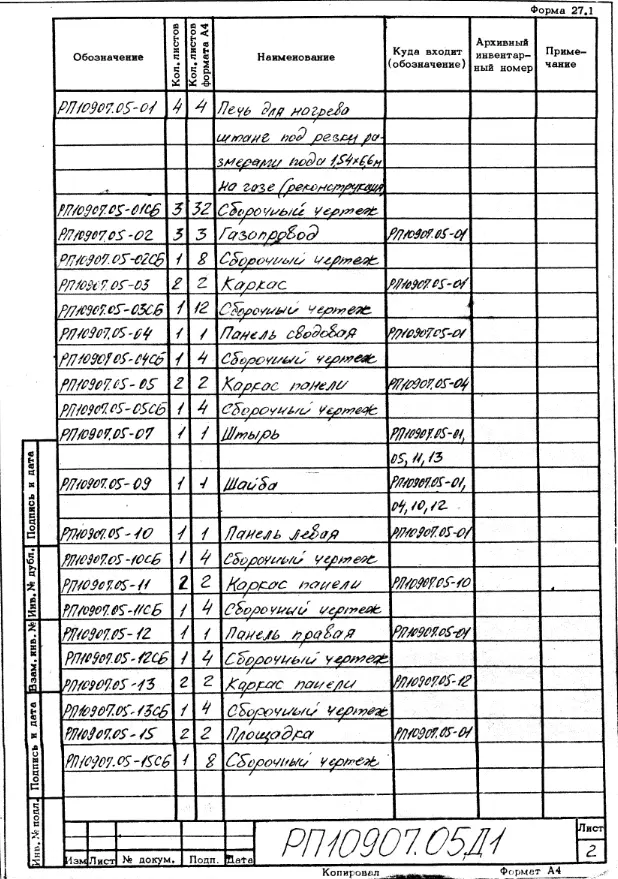 Форма 27.1
Обозначение Кол. листов Кол. листов формата А4 Наименование Куда входит (обозначение) Архивный инвентарный номер Примечание
РП10907.05-01 4 4 Печь для нагрева
штанг под резку ра-
змерами пода 1,54х6,6м
на газе (реконструкция)
РП10907.05-01СБ 3 32 Сборочный чертеж
РП10907.05-02 3 3 Газопровод РП10907.05-01
РП10907.05-02СБ 1 8 Сборочный чертеж
РП10907.05-03 2 2 Каркас РП10907.05-01
РП10907.05-03СБ 1 12 Сборочный чертеж
РП10907.05-04 1 1 Панель сводовая РП10907.05-01
РП10907.05-04СБ 1 4 Сборочный чертеж
РП10907.05-05 2 2 Каркас панели РП10907.05-04
РП10907.05-05СБ 1 4 Сборочный чертеж
РП10907.05-07 1 1 Штырь РП10907.05-01,
05, 11, 13
РП10907.05-09 1 1 Шайба РП10907.05-01,
04, 10, 12
РП10907.05-10 1 1 Панель левая РП10907.05-01
РП10907.05-10СБ 1 4 Сборочный чертеж
РП10907.05-11 2 2 Каркас панели РП10907.05-10
РП10907.05-11СБ 1 4 Сборочный чертеж
РП10907.05-12 1 1 Панель правая РП10907.05-01
РП10907.05-12СБ 1 4 Сборочный чертеж
РП10907.05-13 2 2 Каркас панели РП10907.05-12
РП10907.05-13СБ 1 4 Сборочный чертеж
РП10907.05-15 2 2 Площадка РП10907.05-01
РП10907.05-15СБ 1 8 Сборочный чертеж
Инв.№ подл. Подпись и дата Взам. инв.№ Инв.№ дубл. Подпись и дата
Изм Лист № докум. Подп. Дата
РП10907.05Д1
Лист
2
Копировал Формат А4